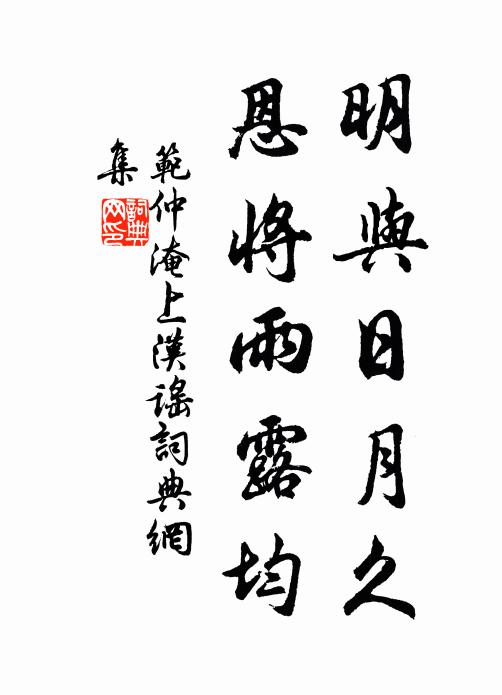 明與日月久
恩將雨露均
範仲淹上漢謠詞典網
集
詞典
网印